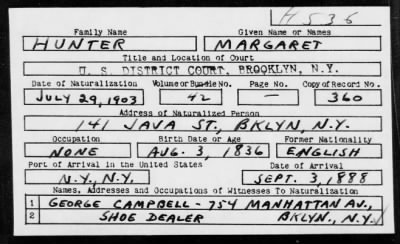 H536
Family Name Given Name or Names
HUNTER MARGARET
Title and Location of Court
U. S. DISTRICT COURT, BROOKLYN, N.Y.
Date of Naturalization Volume or Bundle No. Page No. Copy of Record No.
JULY 29, 1903 42 — 360
Address of Naturalized Person
141 JAVA ST., BKLYN, N.Y.
Occupation Birth Date or Age Former Nationality
NONE AUG. 3, 1836 ENGLISH
Port of Arrival in the United States Date of Arrival
N.Y., N.Y. SEPT. 3, 1888
Names, Addresses and Occupations of Witnesses To Naturalization
1 GEORGE CAMPBELL - 754 MANHATTAN AV.,
2 SHOE DEALER BKLYN., N.Y.